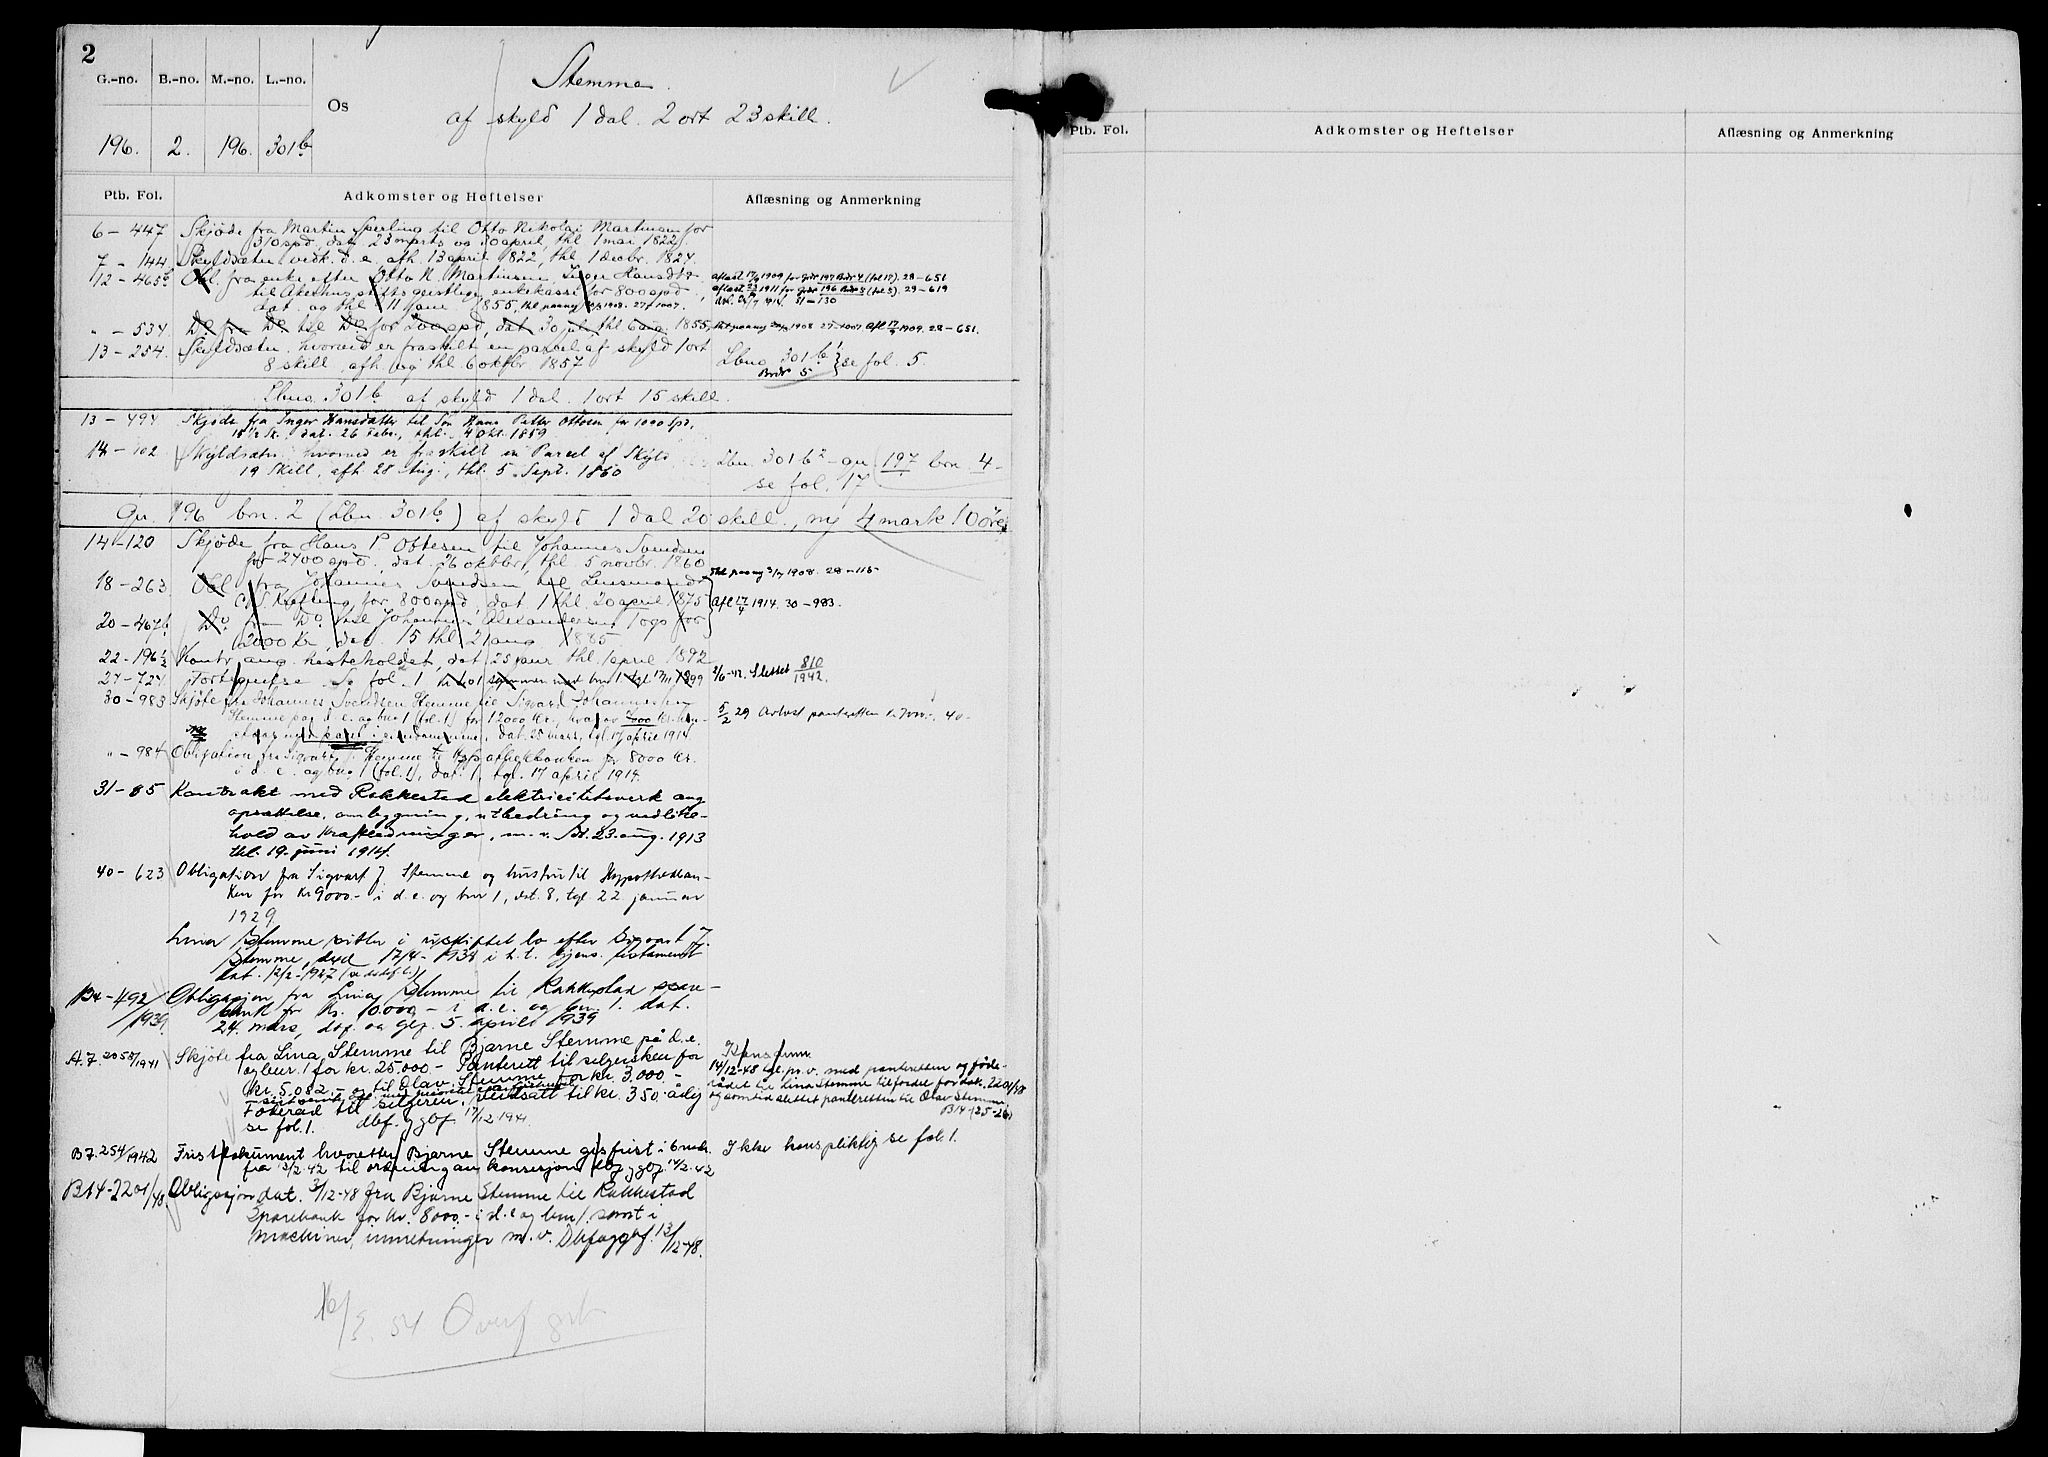 2
G.-no. B.-no. M.-no. L.-no.
196. 2. 196. 301b
Os
Stemme.
af skyld 1 dal. 2 ort 23 skill.
Ptb. Fol. Adkomster og Heftelser Aflæsning og Anmerkning
6 – 447 Skjöde fra Martin Sperling til Otto Nikolai Martinsen for
310 spd, dat 23 marts og 30 april, thl 1 mai 1822.
7 – 144 Skyldsætn. vedk. d. e. afh. 13 april 1822, thl. 1 decbr. 1824.
12 – 465b Obl. fra enke efter Otto N. Martinsen, Inger Hansdtr
til Akershus stifts geistlige enkekasse for 800 spd,
dat. og thl. 11 janr 1855, thl paany 1908. 27 – 1007.
aflæst 17/9 1909 for gnr 197 Bnr 4 (fol 17). 28 – 651
aflæst 1911 for gnr 196 Bnr 5 (fol 5). 29 – 619
1914. 31 – 130
" – 534. Do fra Do til Do for 200 spd, dat 30 juli thl 6 aug. 1855, thl paany 1908 27 – 1007 afl 17/9 1909. 28 – 651.
13 – 254. Skyldsætn. hvorved er fraskilt en parcel af skyld 1 ort
8 skill, afh. og thl. 6 oktbr 1857
Lbno 301b1 Bnr 5 } se fol. 5.
Lbno. 301b af skyld 1 dal. 1 ort 15 skill.
13 – 494 Skjöde fra Inger Hansdatter til Sön Hans Petter Ottesen for 1000 Spd,
dat. 26 Febr., thl. 4 Okt. 1859
14 – 102 Skyldsætn. hvorved er fraskilt en Parcel af Skyld
19 Skill, afh 28 Aug., thl. 5. Sept. 1860
Lbn. 301b2 – gn 197 brn. 4 –
se fol. 17
Gn. 196 brn. 2 (Lbn. 301b) af skyld 1 dal 20 skill., ny 4 mark 10 öre.
14 – 120 Skjöde fra Hans P. Ottesen til Johannes Svendsen
for 2400 spd., dat. 26 oktbr, thl. 5 novbr. 1860
18 – 263. Obl fra Johannes Svendsen til Lensmand
Kefting for 800 spd, dat 1 thl. 20 april 1875
Thl paany 1908. 28 – 115
Afl 17/4 1914. 30 – 983.
20 – 467b Do fra Do til Johannes Alexandersen Togs for
2000 Kr, dat. 15 thl 21 aug. 1885
22 – 196½ Kontr. ang. hesteholdet, dat 25 janr thl. 1 april 1892
27 – 724. Fortegnelse. Se fol. 1 1899
2/6-42. Slettet 810/1942.
30 – 983 Skjöte fra Johannes Svendsen Stemme til Sigvard Johannesen
Stemme paa d. e. og bno 1 (fol. 1) for 12000 Kr., hvorav 7000 Kr.
dat. 25 mars, tgl. 17 april 1914
5/2 29 Avlyst panteretten
" – 984 Obligation fra Sigvart J. Stemme til Hypothekbanken for 8000 Kr.
i d. e. og bno 1 (fol. 1), dat. 1, tgl. 17 april 1914.
31 – 85 Kontrakt med Rakkestad elektricitetsverk ang
oprettelse, ombygning, utbedring og vedlike-
hold av kraftledninger, m. v. Dat. 23. aug. 1913
thl. 19. juni 1914.
40 – 623 Obligation fra Sigvart J. Stemme og hustru til Hypothekban-
ken for Kr 9000.– i d. e. og bnr 1, dat. 8, tgl. 22 januar
1929
Lina Stemme sitter i uskiftet bo efter Sigvart J.
Stemme, död 17/4 – 1938 i h. t. gjens. testament
dat. 12/2 – 1927
B4 – 492/1939. Obligasjon fra Lina Stemme til Rakkestad spare-
bank for Kr. 10.000.– i d. e. og bnr. 1. dat.
24. mars, dbf. og glj. 5. april 1939
A.7. 2058/1941 Skjöte fra Lina Stemme til Bjarne Stemme på d. e.
og bnr. 1 for kr. 25.000.– Panterett til selgersken for
kr. 5.082.– og til Olav Stemme for kr. 3.000.–
Föderåd til selgeren, verdsatt til kr. 350.– årlig
se fol. 1. dbf. og glj 17/12 1941.
14/12-48 tgl. pr. v. med panteretten og föde-
rådet til Lina Stemme tilfordel for dok. 2201/48
og samtid. slettet panteretten til Olav Stemme.
B14 – (25-26)
B7. 254/1942 Fristdokument hvoretter Bjarne Stemme gis frist i 6 mdr.
fra 12/2-42 til ordning av konsesjon dbf og glj. 14/2-42
Ikke konspliktig se fol. 1.
B14 – 2201/48. Obligasjon dat. 3/12-48 fra Bjarne Stemme til Rakkestad
Sparebank for kr. 8000.– i d. e og bnr 1. samt i
maskiner, innretninger m. v. Dbf og glj. 13/12-48.
54 Overf
Ptb. Fol. Adkomster og Heftelser Aflæsning og Anmerkning